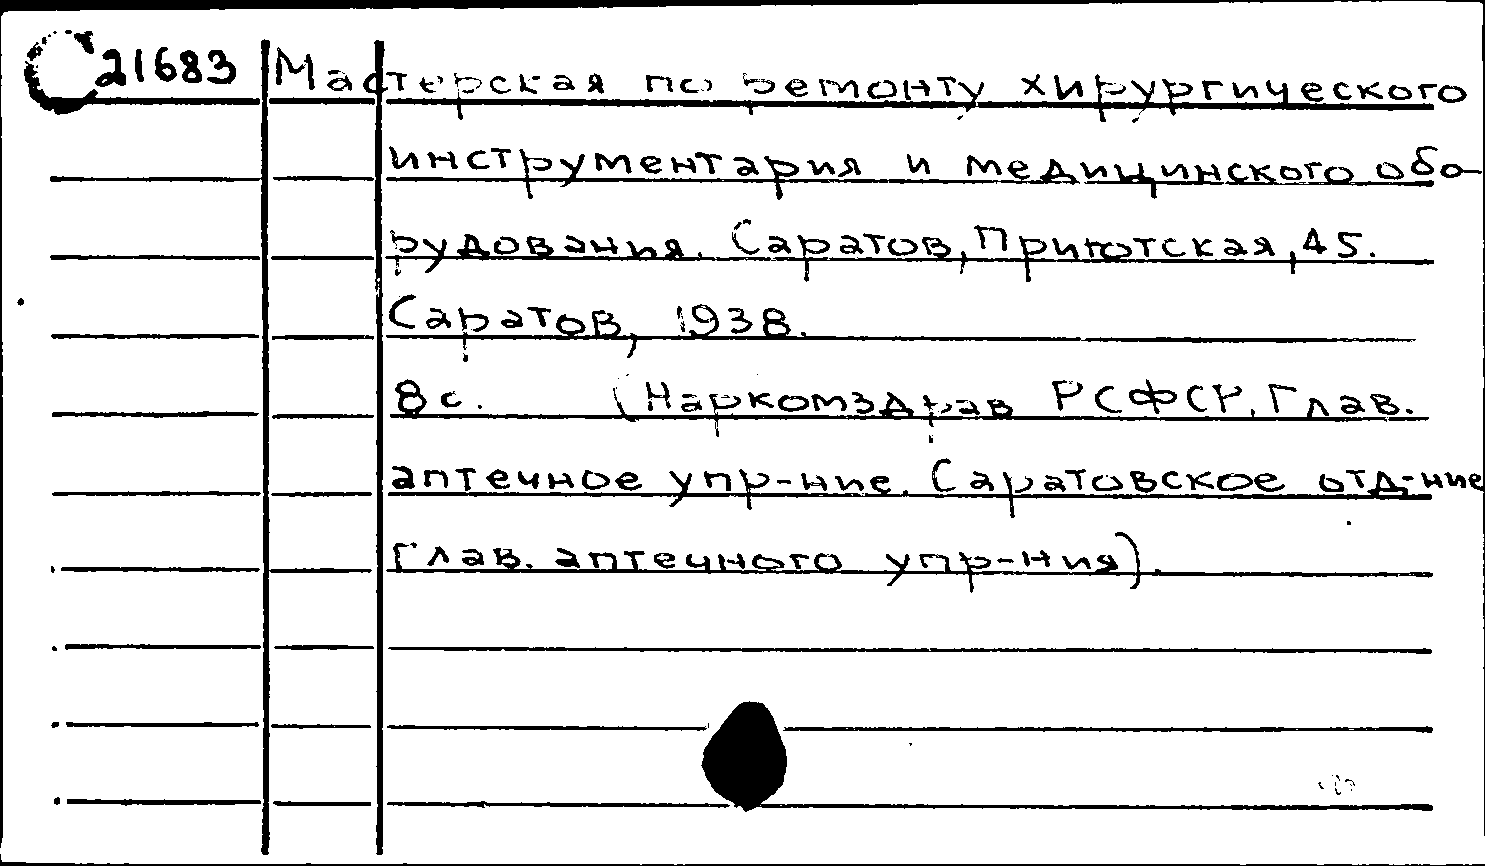 С21683 Мастерская по ремонту хирургического
инструментария и медицинского обо-
рудования. Саратов, Приютская, 45.
Саратов, 1938.
8 с. (Наркомздрав РСФСР. Глав.
аптечное упр-ние. Саратовское отд-ние
Глав. аптечного упр-ния).